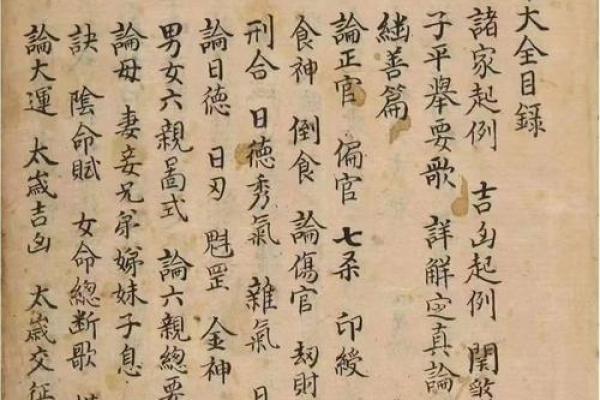 大全目録
諸家起例 吉凶起例 関煞
子平舉要歌 詳解定真論
継善篇
論正官 偏官 七杀 印綬
食神 倒食 論傷官 刼財
刑合 日德秀氣 雜氣 日
論日德 日刃 魁罡 金神
男女六親啚式 論六親總要
論母 妻妾兄弟娣妹子息
訣 陰命賦 女命總断歌
論大運 太嵗吉凶 太嵗交征